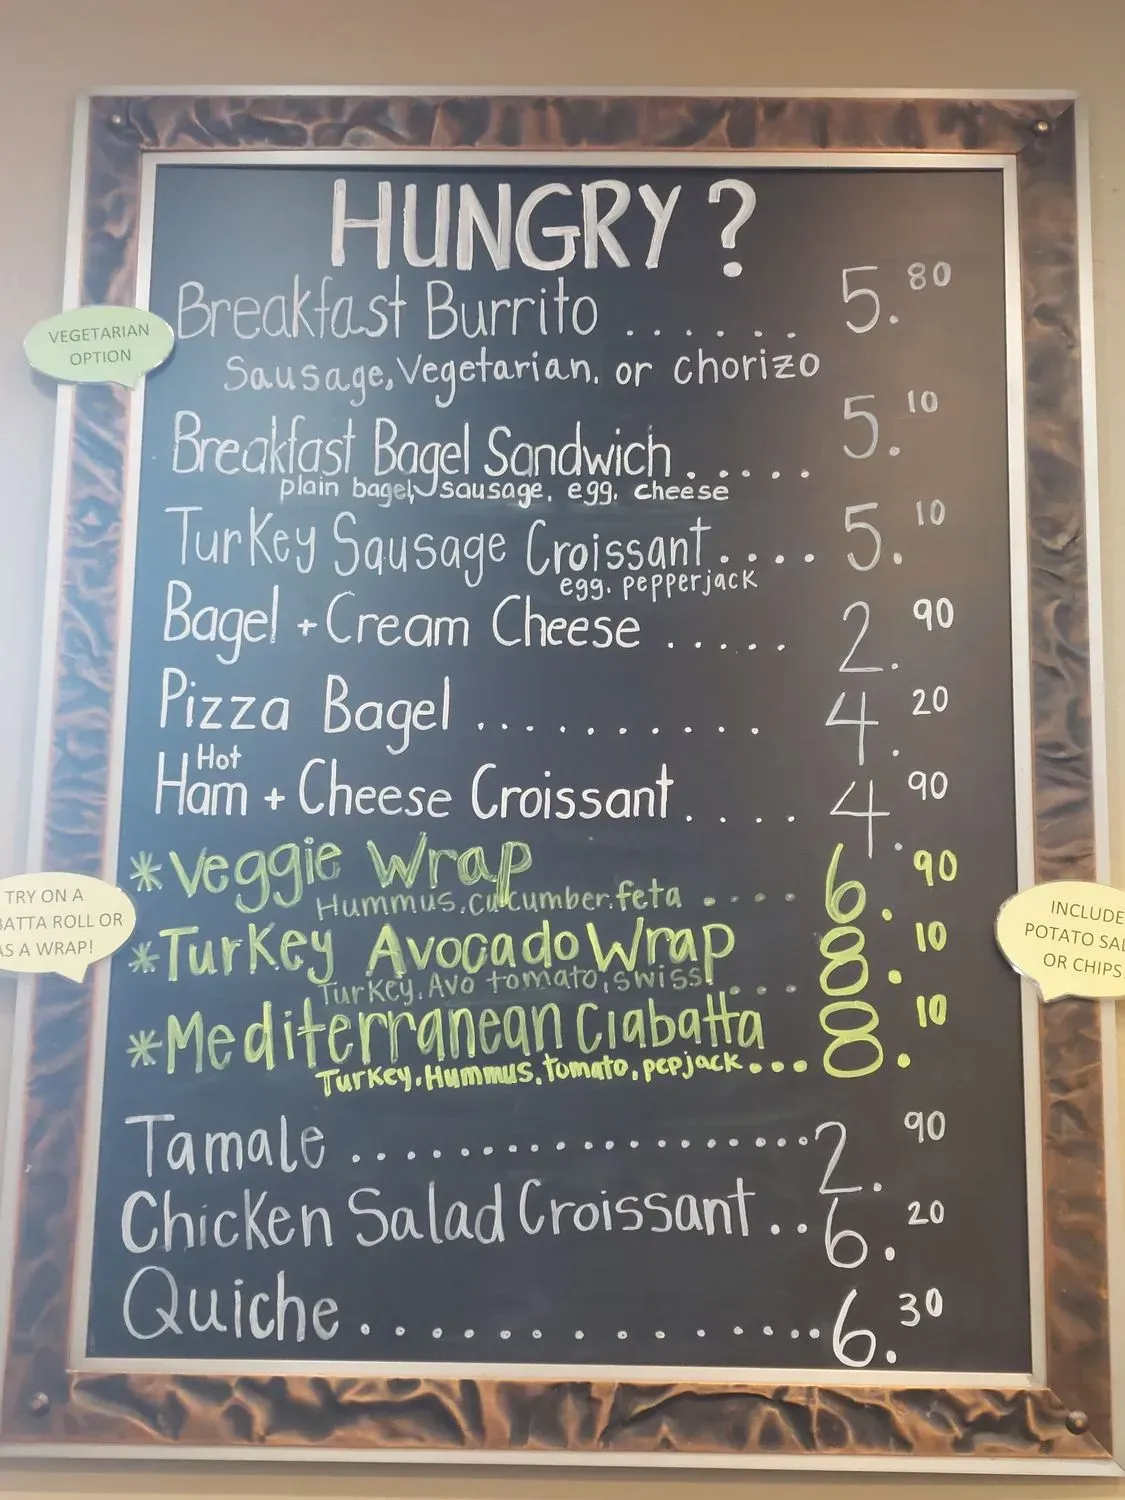 HUNGRY?
Breakfast Burrito ...... 5.80
VEGETARIAN
OPTION
Sausage, Vegetarian, or chorizo
Breakfast Bagel Sandwich ..... 5.10
plain bagel, sausage, egg, cheese
Turkey Sausage Croissant .... 5.10
egg, pepperjack
Bagel + Cream Cheese ..... 2.90
Pizza Bagel .......... 4.20
Hot
Ham + Cheese Croissant .... 4.90
*Veggie Wrap
Hummus, cucumber, feta .... 6.90
TRY ON A
BATTA ROLL OR
AS A WRAP!
*Turkey Avocado Wrap
Turkey, Avo tomato, swiss ... 8.10
INCLUDE
POTATO SAL
OR CHIPS
*Mediterranean Ciabatta
Turkey, Hummus, tomato, pepjack ... 8.10
Tamale .................. 2.90
Chicken Salad Croissant .. 6.20
Quiche .............. 6.30